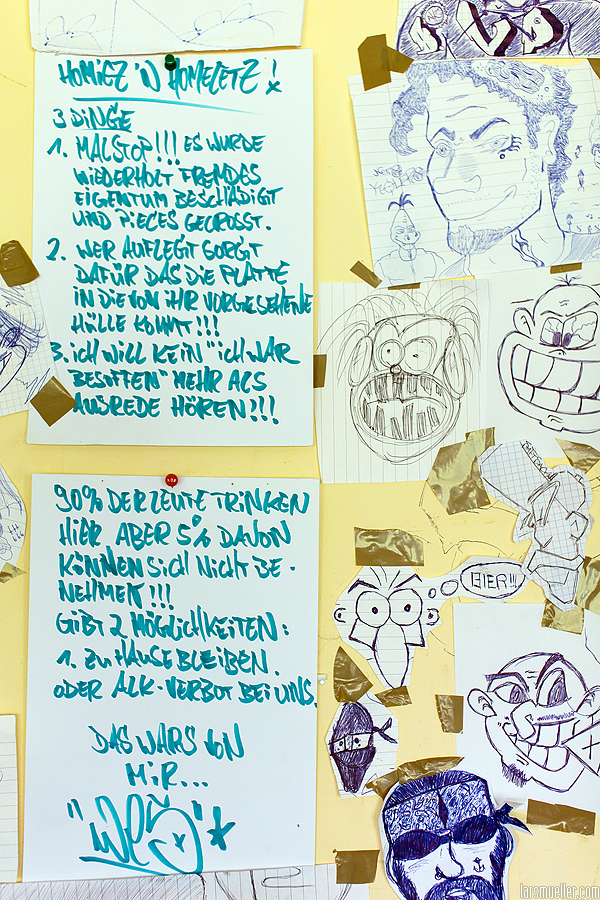 HOMIEZ 'N HOMELETZ!
3 DINGE
1. MALSTOP!!! ES WURDE
WIEDERHOLT FREMDES
EIGENTUM BESCHÄDIGT
UND PIECES GECROSST.
2. WER AUFLEGT SORGT
DAFÜR DAS DIE PLATTE
IN DIE VON IHR VORGESEHENE
HÜLLE KOMMT!!!
3. ICH WILL KEIN "ICH WAR
BESOFFEN" MEHR ALS
AUSREDE HÖREN!!!
90% DER LEUTE TRINKEN
HIER ABER 5% DAVON
KÖNNEN SICH NICHT BE-
NEHMEN!!!
GIBT 2 MÖGLICHKEITEN:
1. ZU HAUSE BLEIBEN.
ODER ALK-VERBOT BEI UNS.
DAS WARS VON
MIR...
EIER!!!
larsmueller.com